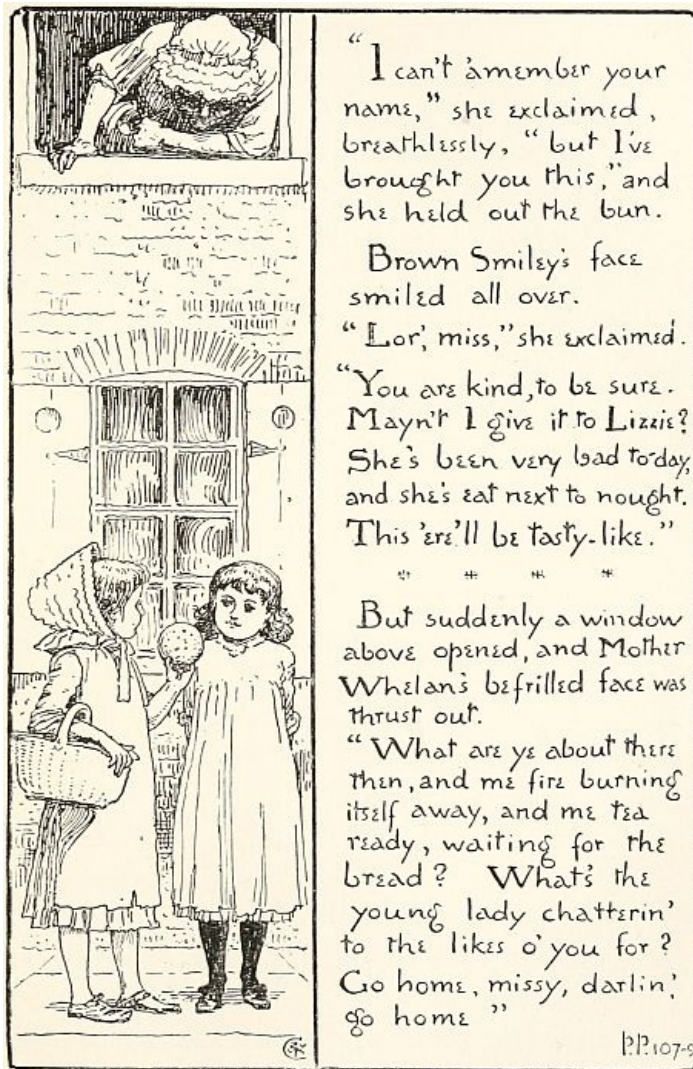 "I can't 'amember your
name," she exclaimed,
breathlessly, "but I've
brought you this," and
she held out the bun.
Brown Smiley's face
smiled all over.
"Lor', miss," she exclaimed.
"You are kind, to be sure.
Mayn't I give it to Lizzie?
She's been very bad to-day,
and she's eat next to nought.
This 'ere'll be tasty-like."
But suddenly a window
above opened, and Mother
Whelan's befrilled face was
thrust out.
"What are ye about there
then, and me fire burning
itself away, and me tea
ready, waiting for the
bread? What's the
young lady chatterin'
to the likes o' you for?
Go home, missy, darlin',
go home"
P.P. 107-9